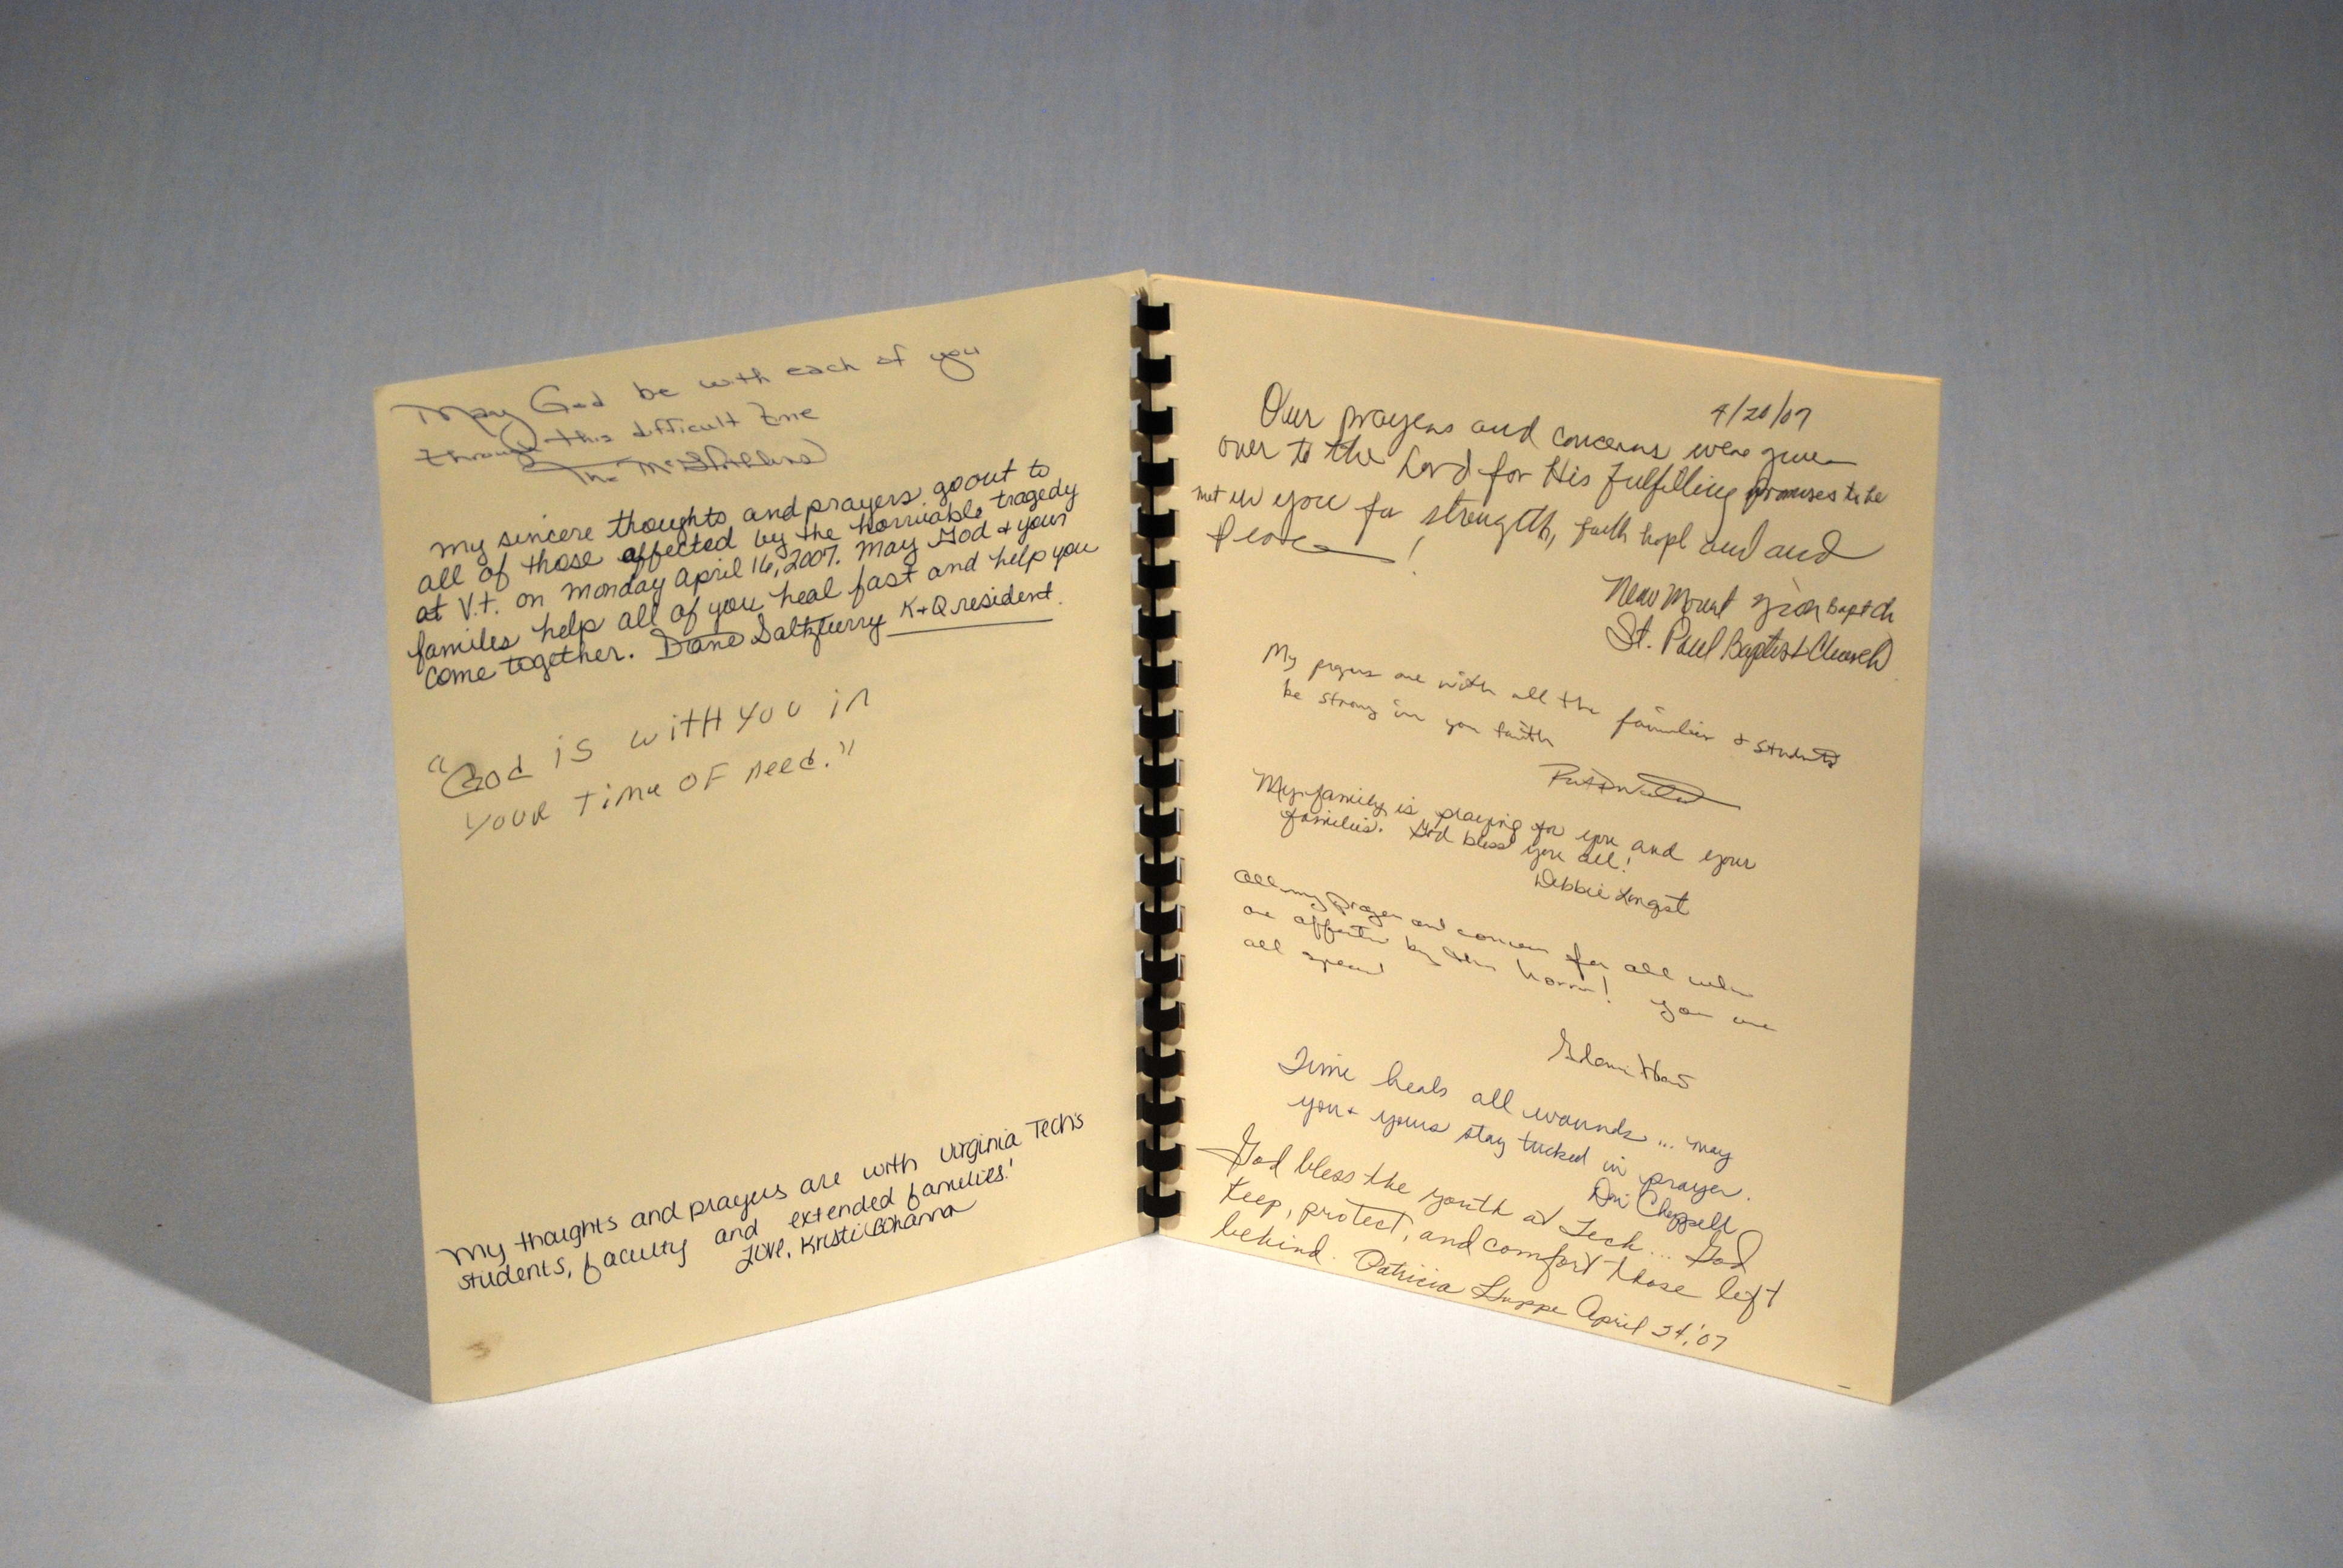 May God be with each of you
through this difficult time
The
My sincere thoughts and prayers go out to
all of those affected by the horriable tragedy
at V.t. on Monday April 16, 2007. May God & your
families help all of you heal fast and help you
come together. Diane K+Q resident.
"God is with you in
your time of need."
My thoughts and prayers are with Virginia Tech's
students, faculty and extended families!
Love, Kristi Bohanna
4/20/07
Our prayers and concerns were given
over to the Lord for His fulfilling promises to be
met in you for strength, faith hope and and
Peace!
New Mount Zion Baptist
St. Paul Baptist Church
My prayers are with all the families & students
be strong in your faith
My family is praying for you and your
families. God bless you all!
Debbie Longest
All my prayers and concern for all who
are affected by this horror! You are
all special
Time heals all wounds... may
you & yours stay tucked in prayer.
Chappell
God bless the youth at Tech... God
Keep, protect, and comfort those left
behind. Patricia April 24, '07